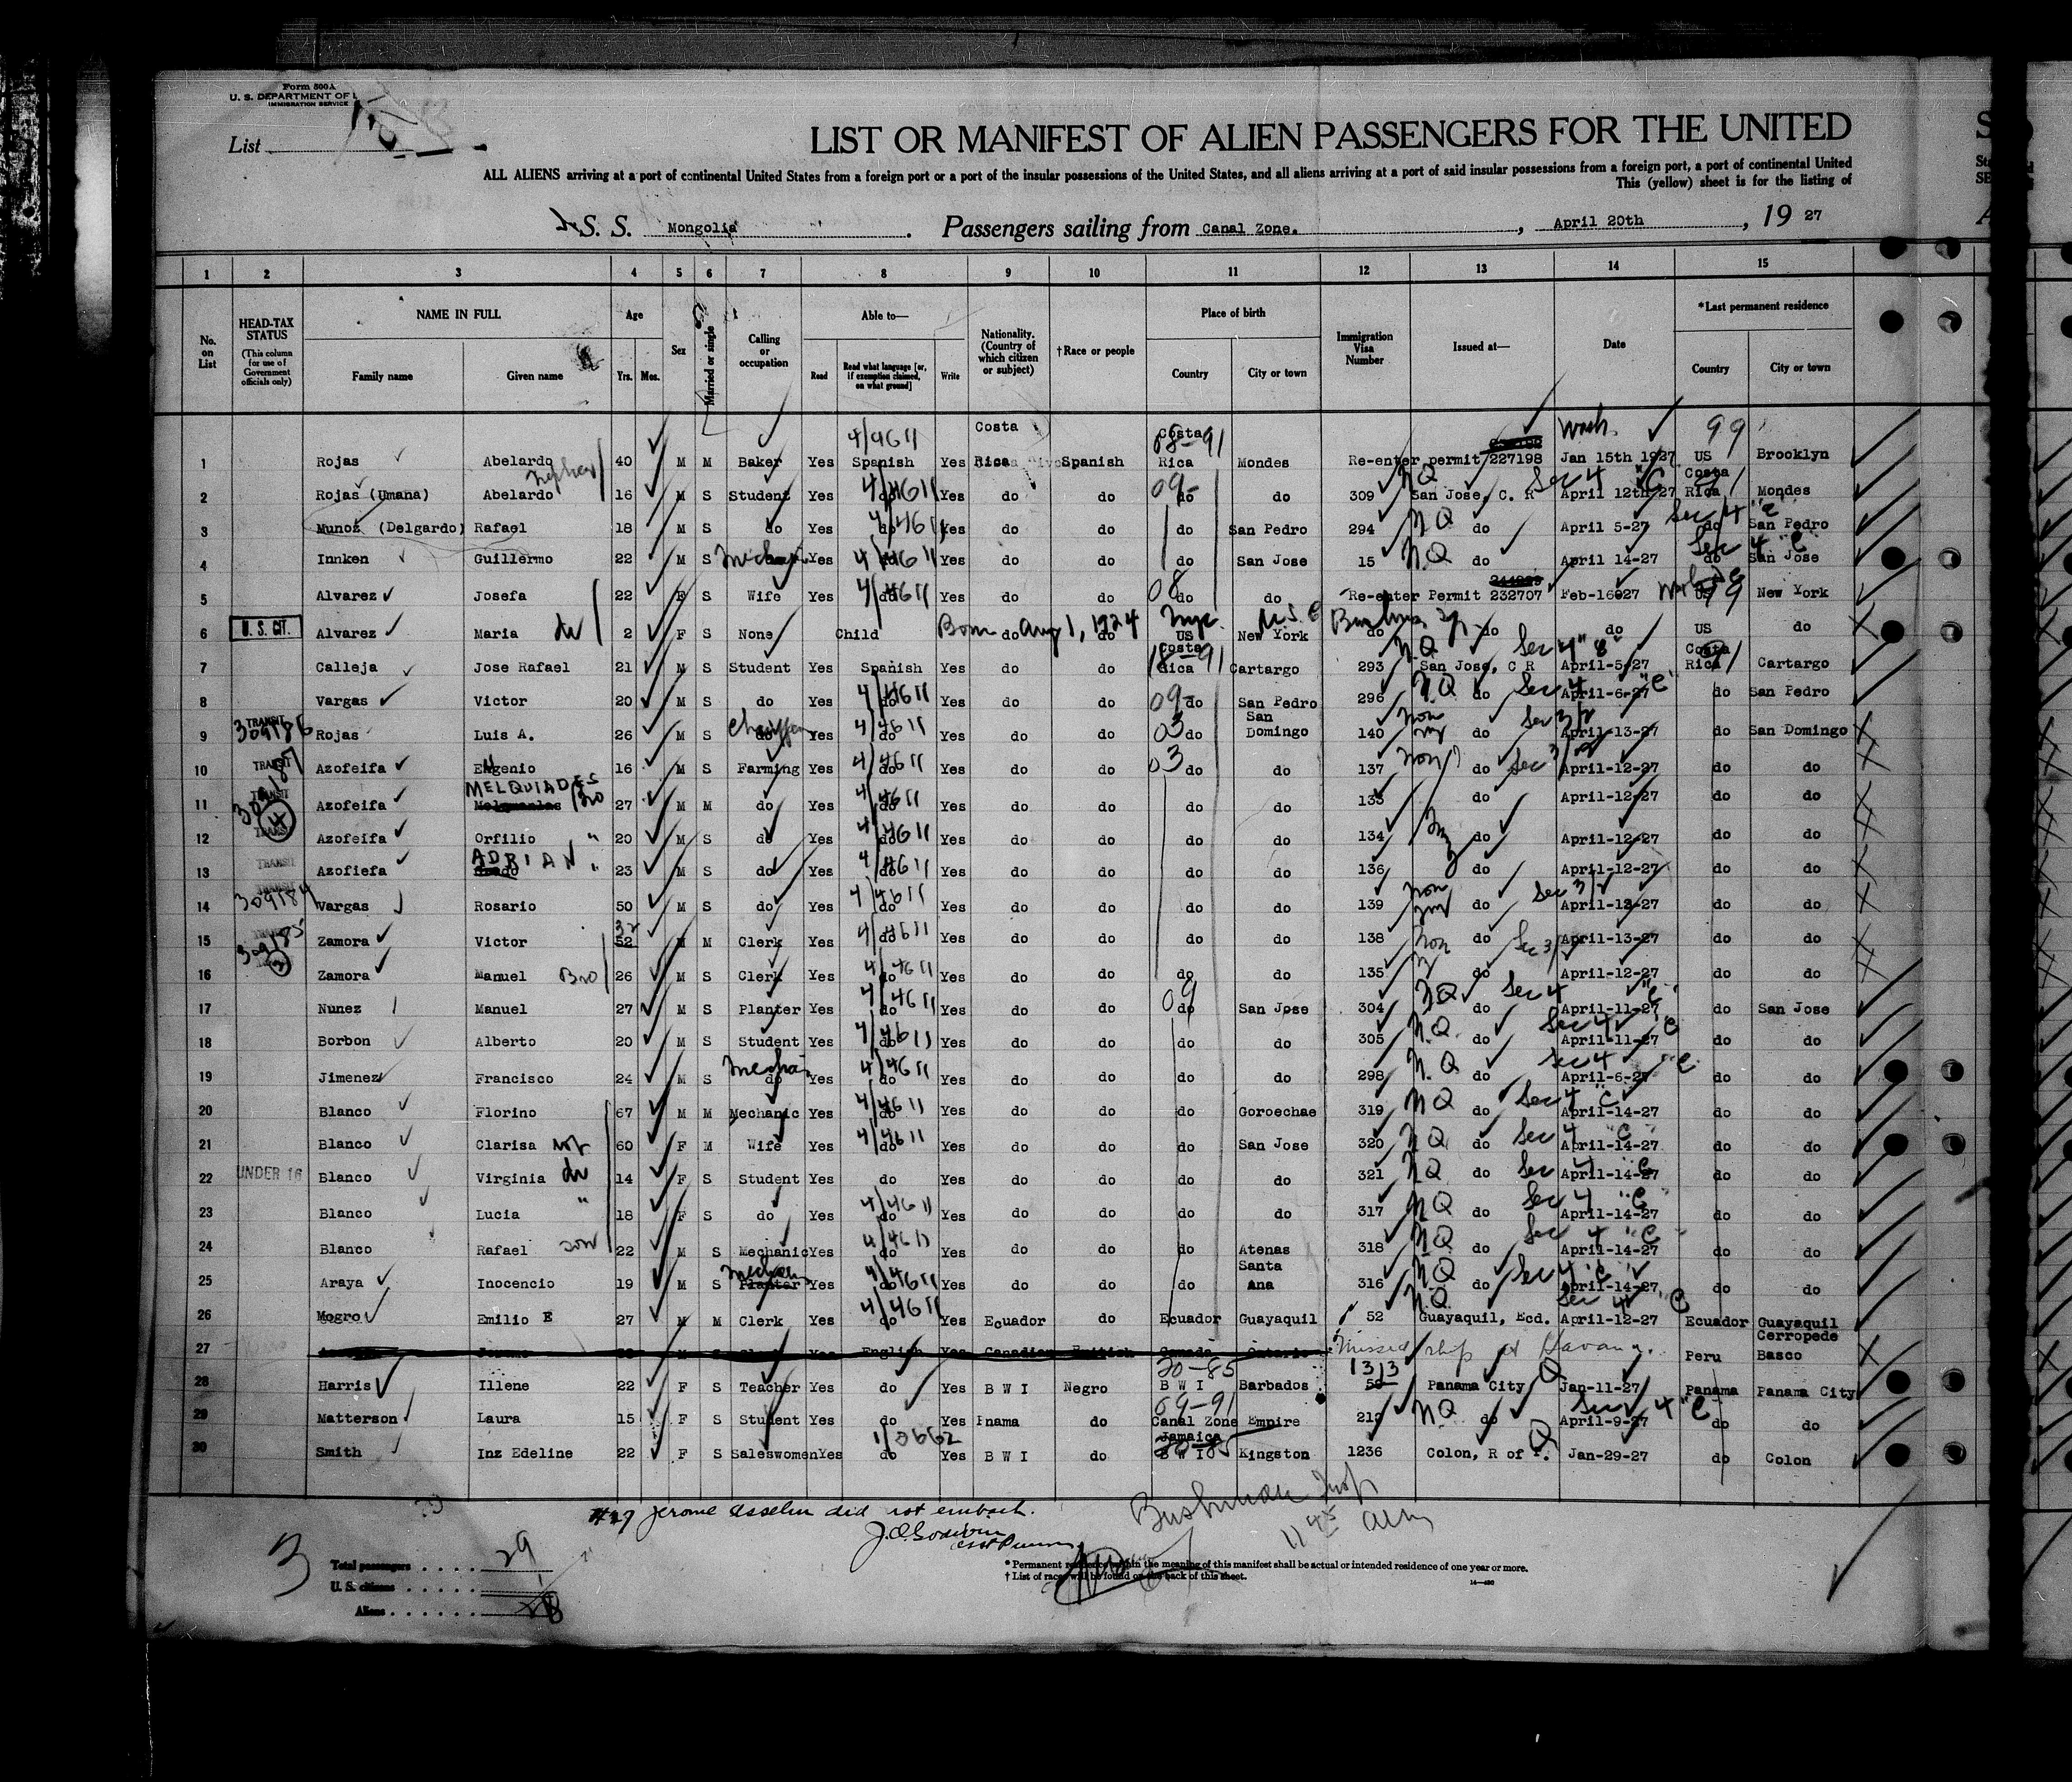 Form 500A
U. S. DEPARTMENT OF L
IMMIGRATION SERVICE
List
LIST OR MANIFEST OF ALIEN PASSENGERS FOR THE UNITED
ALL ALIENS arriving at a port of continental United States from a foreign port or a port of the insular possessions of the United States, and all aliens arriving at a port of said insular possessions from a foreign port, a port of continental United
This (yellow) sheet is for the listing of
S. S. Mongolia. Passengers sailing from Canal Zone., April 20th, 19 27
1 2 3 4 5 6 7 8 9 10 11 12 13 14 15
No. on List
HEAD-TAX STATUS (This column for use of Government officials only)
NAME IN FULL Family name Given name
Age Yrs. Mos.
Sex
Married or single
Calling or occupation
Able to— Read Read what language [or, if exemption claimed, on what ground] Write
Nationality. (Country of which citizen or subject)
†Race or people
Place of birth Country City or town
Immigration Visa Number
Issued at—
Date
*Last permanent residence Country City or town
1 Rojas Abelardo 40 M M Baker Yes Spanish 4/4611 Yes Costa Rica Spanish Costa Rica 08-91 Mondes Re-enter permit 227198 Wash. Jan 15th 1927 US 99 Brooklyn
2 Rojas (Umana) Abelardo nephew 16 M S Student Yes do 4/4611 Yes do do do 09- do 309 NQ San Jose, C. R Sec 4 "C" April 12th 27 Costa Rica Mondes
3 Munoz (Delgardo) Rafael 18 M S do Yes do 4/4611 Yes do do do San Pedro 294 NQ do April 5-27 Sec 4 "C" do San Pedro
4 Innken Guillermo 22 M S Mechanic Yes do 4/4611 Yes do do do San Jose 15 N.Q do April 14-27 Sec 4 "C" do San Jose
5 Alvarez Josefa 22 F S Wife Yes do 4/4611 Yes do do 08 do do Re-enter Permit 232707 Feb-16-27 US 99 New York
6 U. S. CIT. Alvarez Maria 2 F S None Child Born Aug 1, 1924 do do US New York do do do US do
7 Calleja Jose Rafael 21 M S Student Yes Spanish Yes do do Costa Rica 18-91 Cartargo 293 NQ San Jose, C R Sec 4 April-5-27 Costa Rica Cartargo
8 Vargas Victor 20 M S do Yes do 4/4611 Yes do do 09- do San Pedro 296 N.Q do Sec 4 "C" April-6-27 do San Pedro
9 TRANSIT 309186 Rojas Luis A. 26 M S Chauffeur do Yes do 4/4611 Yes do do 03 do San Domingo 140 do Sec 3/2 April-13-27 do San Domingo
10 TRANSIT Azofeifa Eugenio 16 M S Farming Yes do 4/4611 Yes do do 03 do do 137 do April-12-27 do do
11 TRANSIT Azofeifa MELQUIADES Bro 27 M M do Yes do 4/4611 Yes do do do do 133 do April-12-27 do do
12 TRANSIT Azofeifa Orfilio " 20 M S do Yes do 4/4611 Yes do do do do 134 do April-12-27 do do
13 TRANSIT Azofiefa ADRIAN " 23 M S do Yes do 4/4611 Yes do do do do 136 do April-12-27 do do
14 TRANSIT Vargas Rosario 50 M S do Yes do 4/4611 Yes do do do do 139 do Sec 3/2 April-13-27 do do
15 309185 Zamora Victor 32 52 M M Clerk Yes do 4/4611 Yes do do do do 138 do April-13-27 do do
16 Zamora Manuel Bro 26 M S Clerk Yes do 4/4611 Yes do do do do 135 do April-12-27 do do
17 Nunez Manuel 27 M S Planter Yes do 4/4611 Yes do do 09 do San Jose 304 NQ do Sec 4 "C" April-11-27 do San Jose
18 Borbon Alberto 20 M S Student Yes do 4/4611 Yes do do do do 305 N.Q. do Sec 4 "C" April-11-27 do do
19 Jimenez Francisco 24 M S do Yes do 4/4611 Yes do do do do 298 N.Q do Sec 4 "C" April-6-27 do do
20 Blanco Florino 67 M M Mechanic Yes do 4/4611 Yes do do do Goroechae 319 NQ do Sec 4 "C" April-14-27 do do
21 Blanco Clarisa wf 60 F M Wife Yes do 4/4611 Yes do do do San Jose 320 NQ do Sec 4 "C" April-14-27 do do
22 UNDER 16 Blanco Virginia 14 F S Student Yes do Yes do do do do 321 NQ do Sec 4 "C" April-14-27 do do
23 Blanco Lucia " 18 F S do Yes do 4/4611 Yes do do do do 317 NQ do Sec 4 "C" April-14-27 do do
24 Blanco Rafael son 22 M S Mechanic Yes do 4/4611 Yes do do do Atenas 318 NQ do Sec 4 "C" April-14-27 do do
25 Araya Inocencio 19 M S Planter Yes do 4/4611 Yes do do do Santa Ana 316 NQ do Sec 4 "C" April-14-27 do do
26 Mogro Emilio E 27 M M Clerk Yes do 4/4611 Yes Ecuador do Ecuador Guayaquil 52 N.Q. Guayaquil, Ecd. Sec 4 "C" April-12-27 Ecuador Guayaquil
27 English Yes Canadian British Canada Ontario Missed ship at Havana. Peru Cerropede Basco
28 Harris Illene 22 F S Teacher Yes do Yes B W I Negro B W I 20-85 Barbados 1313 Panama City Q Jan-11-27 Panama Panama City
29 Matterson Laura 15 F S Student Yes do Yes Pnama do Canal Zone 69-91 Empire 219 NQ do Sec 4 "C" April-9-27 do do
30 Smith Inz Edeline 22 F S Saleswomen Yes do Yes B W I do Jamaica B W I Kingston 1236 Colon, R of P. Q Jan-29-27 do Colon
#27 Jerome Asselin did not embark.
Bushman Insp
11 45 am
Total passengers . . . . 29
U. S. citizens . . . . . 1
Aliens . . . . . . 28
* Permanent residence within the meaning of this manifest shall be actual or intended residence of one year or more.
† List of races will be found on the back of this sheet.